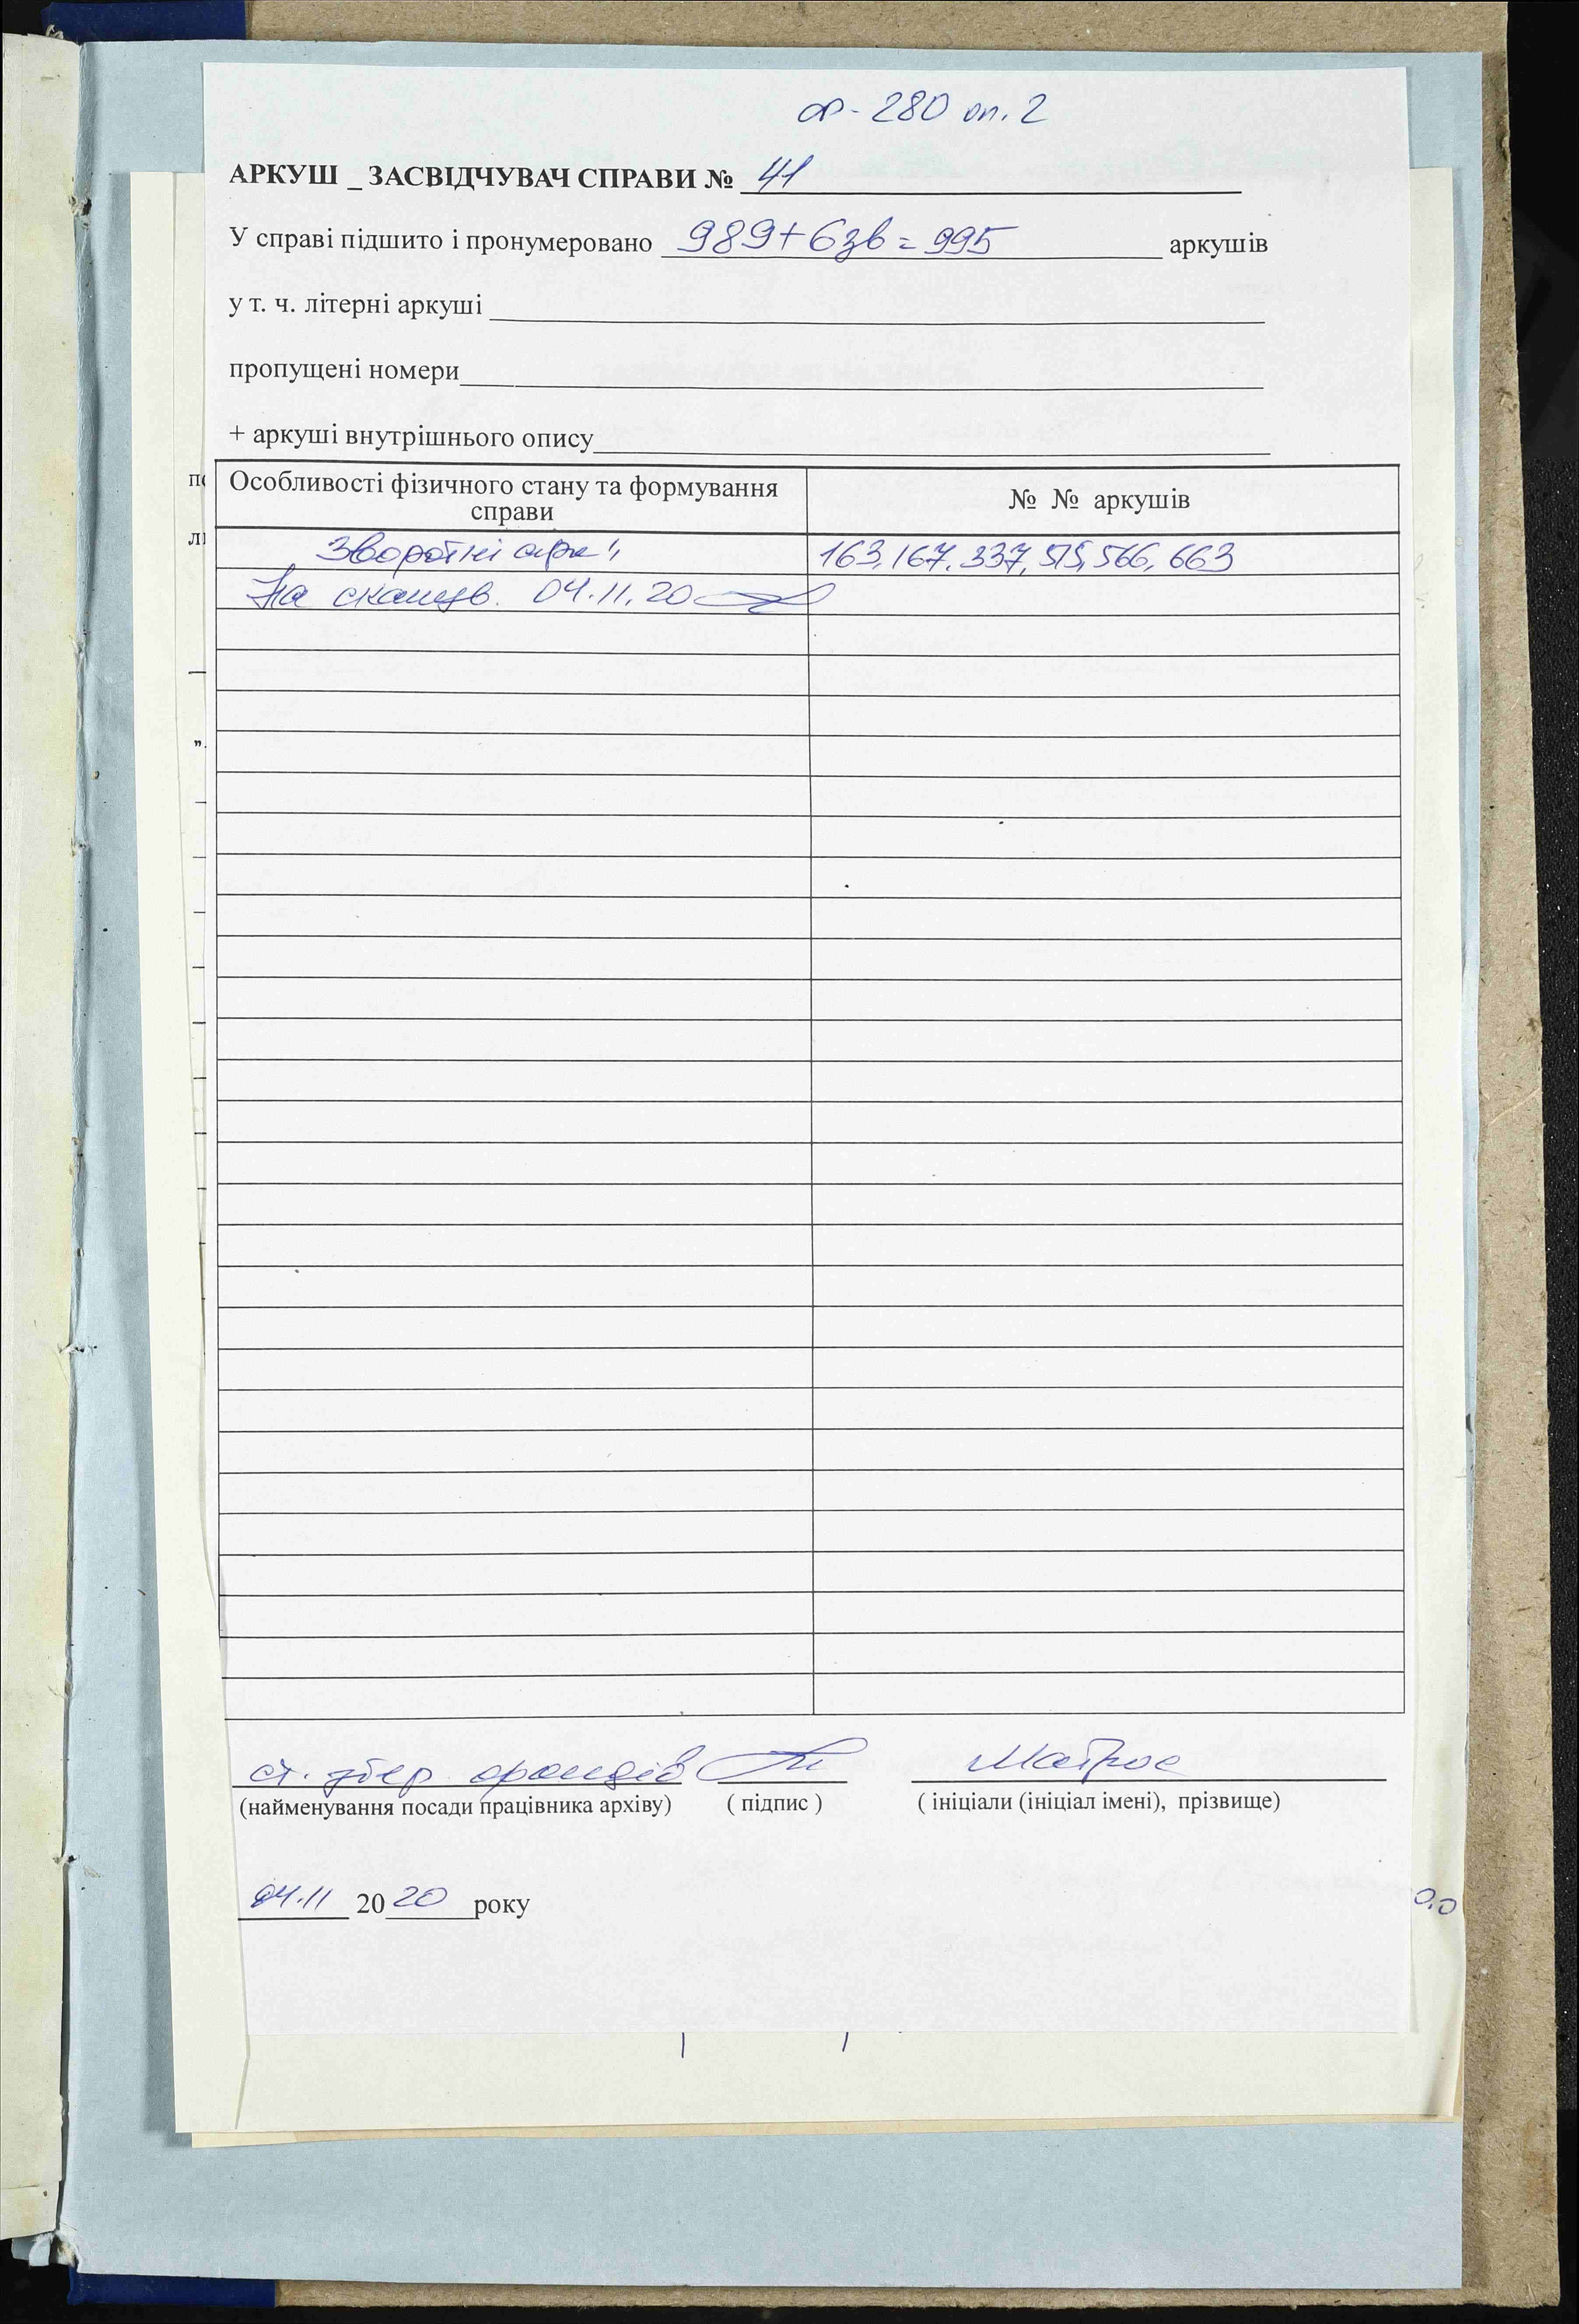 ф-280 оп. 2
АРКУШ _ ЗАСВІДЧУВАЧ СПРАВИ № 41
У справі підшито і пронумеровано 989+6зв = 995 аркушів
у т. ч. літерні аркуші
пропущені номери
+ аркуші внутрішнього опису
Особливості фізичного стану та формування справи № № аркушів
Зворотні арк 163, 167, 337, 515, 566, 663
На сканув. 04.11.20
ст. збер фондів Матрос
(найменування посади працівника архіву) ( підпис ) ( ініціали (ініціал імені), прізвище)
04.11 2020 року